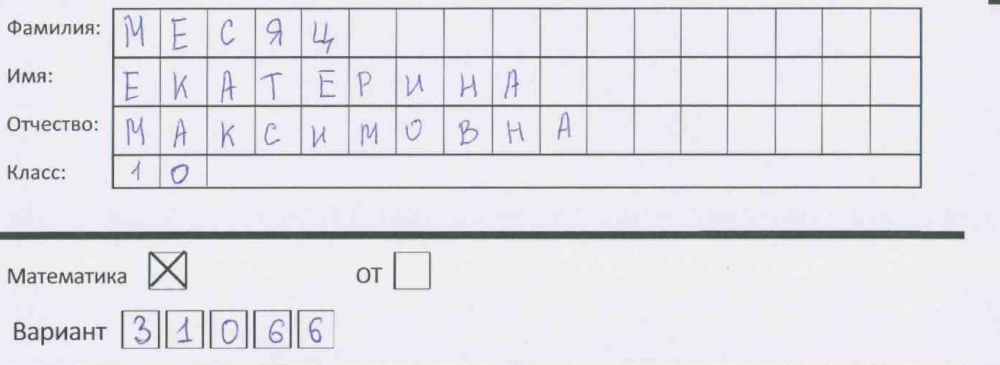 Фамилия: МЕСЯЦ
Имя: ЕКАТЕРИНА
Отчество: МАКСИМОВНА
Класс: 10
Математика ☒ ОТ ☐
Вариант 31066